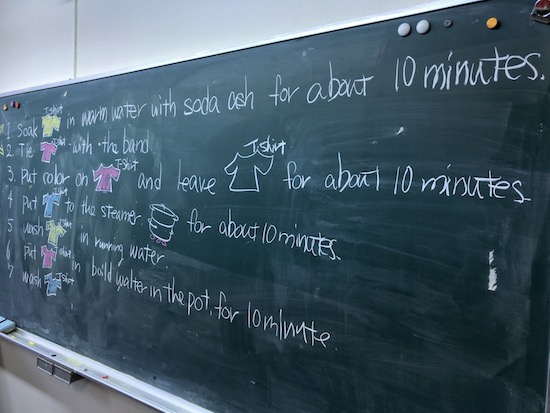 1. Soak T-shirt in warm water with soda ash for about 10 minutes.
2. Tie T-shirt with the band
3. Put color on T-shirt and leave T-shirt for about 10 minutes.
4 Put T-shirt to the steamer for about 10 minutes.
5 wash T-shirt in running water.
6 Put T-shirt in boild water in the pot, for 10 minute.
7 wash T-shirt